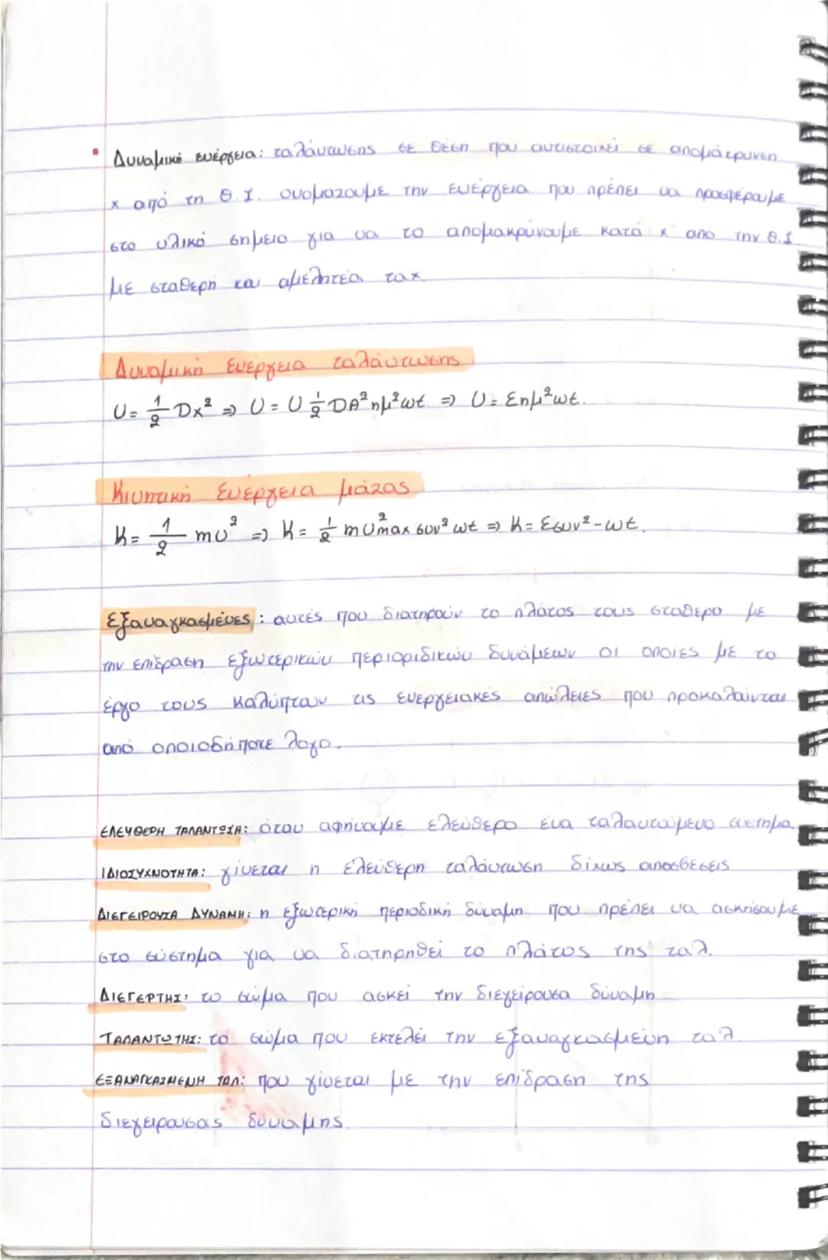 • Δυναμική ενέργεια: ταλάντωσης σε θέση που αντιστοιχεί σε απομάκρυνση
x από τη Θ.Ι. ονομάζουμε την ενέργεια που πρέπει να προσφέρουμε
στο υλικό σημείο για να το απομακρύνουμε κατά x απο την Θ.Ι.
με σταθερή και αμελητέα ταχ.
Δυναμική ενέργεια ταλάντωσης
U = 1/2 Dx² ⇒ U = U 1/2 DA²ημ²ωt ⇒ U = Εημ²ωt.
Κινητική ενέργεια μάζας
K = 1/2 mυ² ⇒ K = 1/2 mυ²max συν²ωt ⇒ K = Εσυν²-ωt.
Εξαναγκασμένες: αυτές που διατηρούν το πλάτος τους σταθερο με
την επίδραση εξωτερικών περιοριδικών δυνάμεων οι οποίες με το
έργο τους καλύπταν τις ενεργειακές απώλειες που προκαλούνται
από οποιοδήποτε λόγο.
ΕΛΕΥΘΕΡΗ ΤΑΛΑΝΤΩΣΗ: όταν αφήνουμε ελεύθερο ένα ταλαντωμενο σύστημα
ΙΔΙΟΣΥΧΝΟΤΗΤΑ: γίνεται η ελεύθερη ταλάντωση δίχως αποσβέσεις
ΔΙΕΓΕΙΡΟΥΣΑ ΔΥΝΑΜΗ: η εξωτερική περιοδική δύναμη που πρέπει να ασκήσουμε
στο σύστημα για να διατηρηθεί το πλάτος της ταλ.
ΔΙΕΓΕΡΤΗΣ: το σώμα που ασκεί την διεγείρουσα δύναμη
ΤΑΛΑΝΤΩΤΗΣ: το σώμα που εκτελεί την εξαναγκασμένη ταλ
ΕΞΑΝΑΓΚΑΣΜΕΝΗ ΤΑΛ: που γίνεται με την επίδραση της
διεγειρουσας δύναμης.